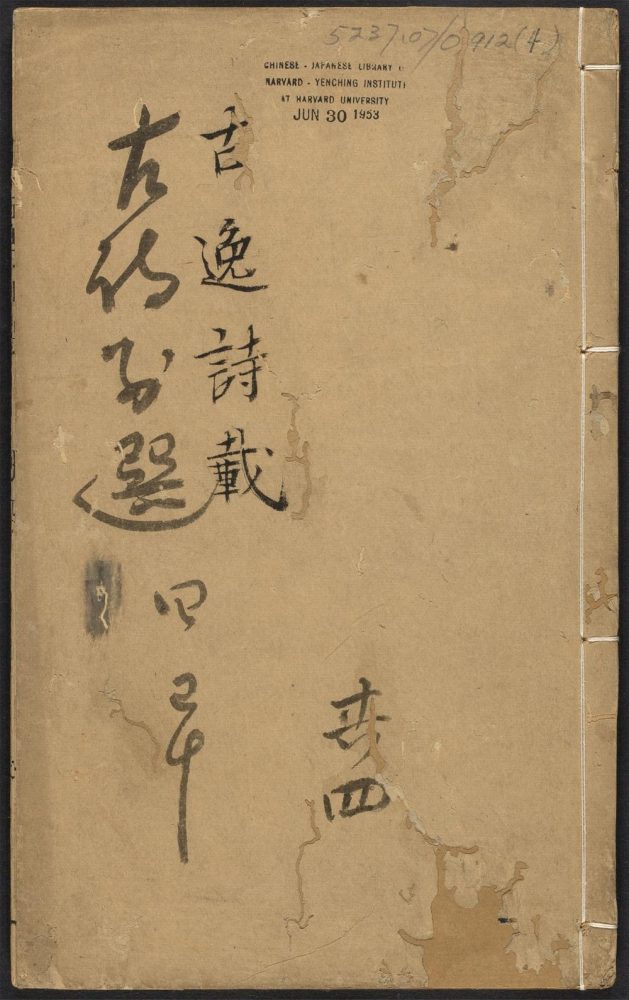 5237.07/0912(4)
CHINESE - JAPANESE LIBRARY
HARVARD - YENCHING INSTITUTE
AT HARVARD UNIVERSITY
JUN 30 1953
四
古逸詩載
古詩選
四